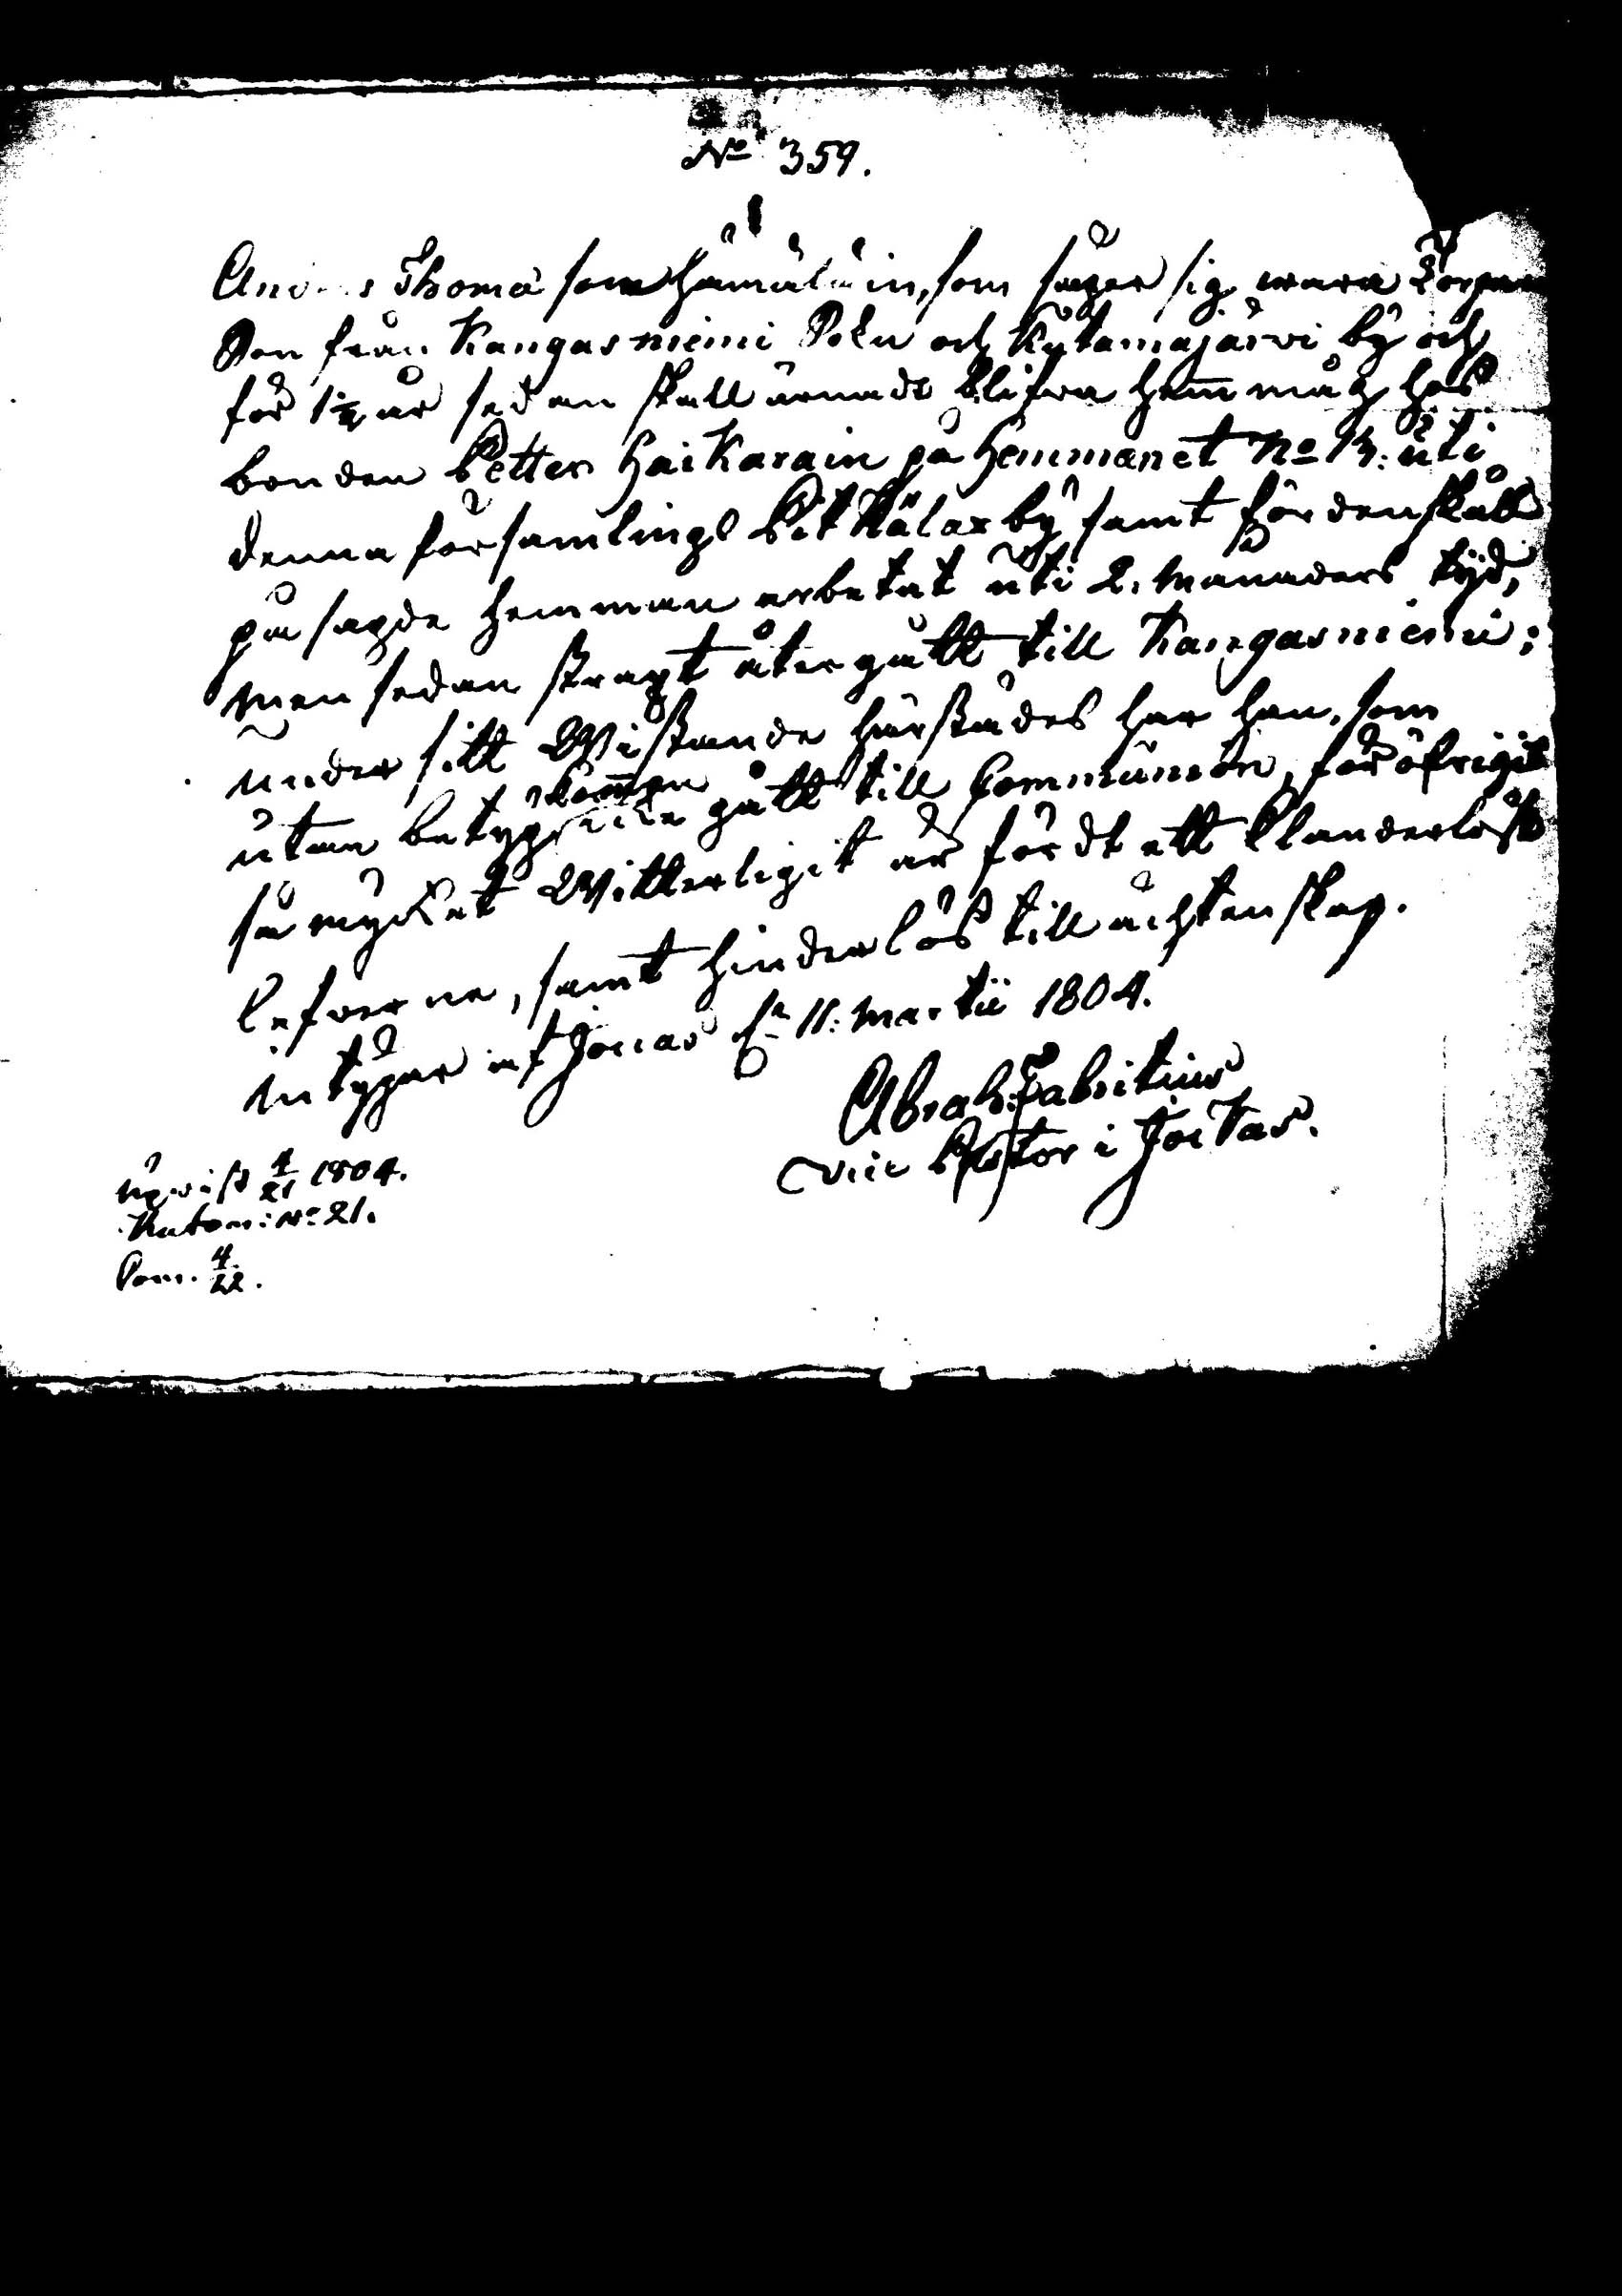 No 359.
Anders Thomæ son Hämäläin, som säger sig wara Torpare
Son från Kangasniemi Sokn och Kutamajärvi by och
för 1½ år sedan skall ärnadt blifwa hem̅måg hos
bonden Petter Haikarain på Hemmanet No 13: uti
denna församlings Pitkälax by samt fördenskull
på sagde hemman arbetat uti 2. Månaders tijd,
men sedan strax återgått till Kangasniemi;
under sitt Wistande härstädes har han, som
utan betyg kom̅en gått till Communion, för öfrigit
så mycket Witterligit är fördt ett klanderlöst
lefwerne, samt hinderlös till ächtenskap.
intygar af Joccas d. 11: Martii 1804.
Abrah: Fabritius
vice Pastor i Jockas.
upwist 4/21 1804.
No 21.
Com. 4/22.